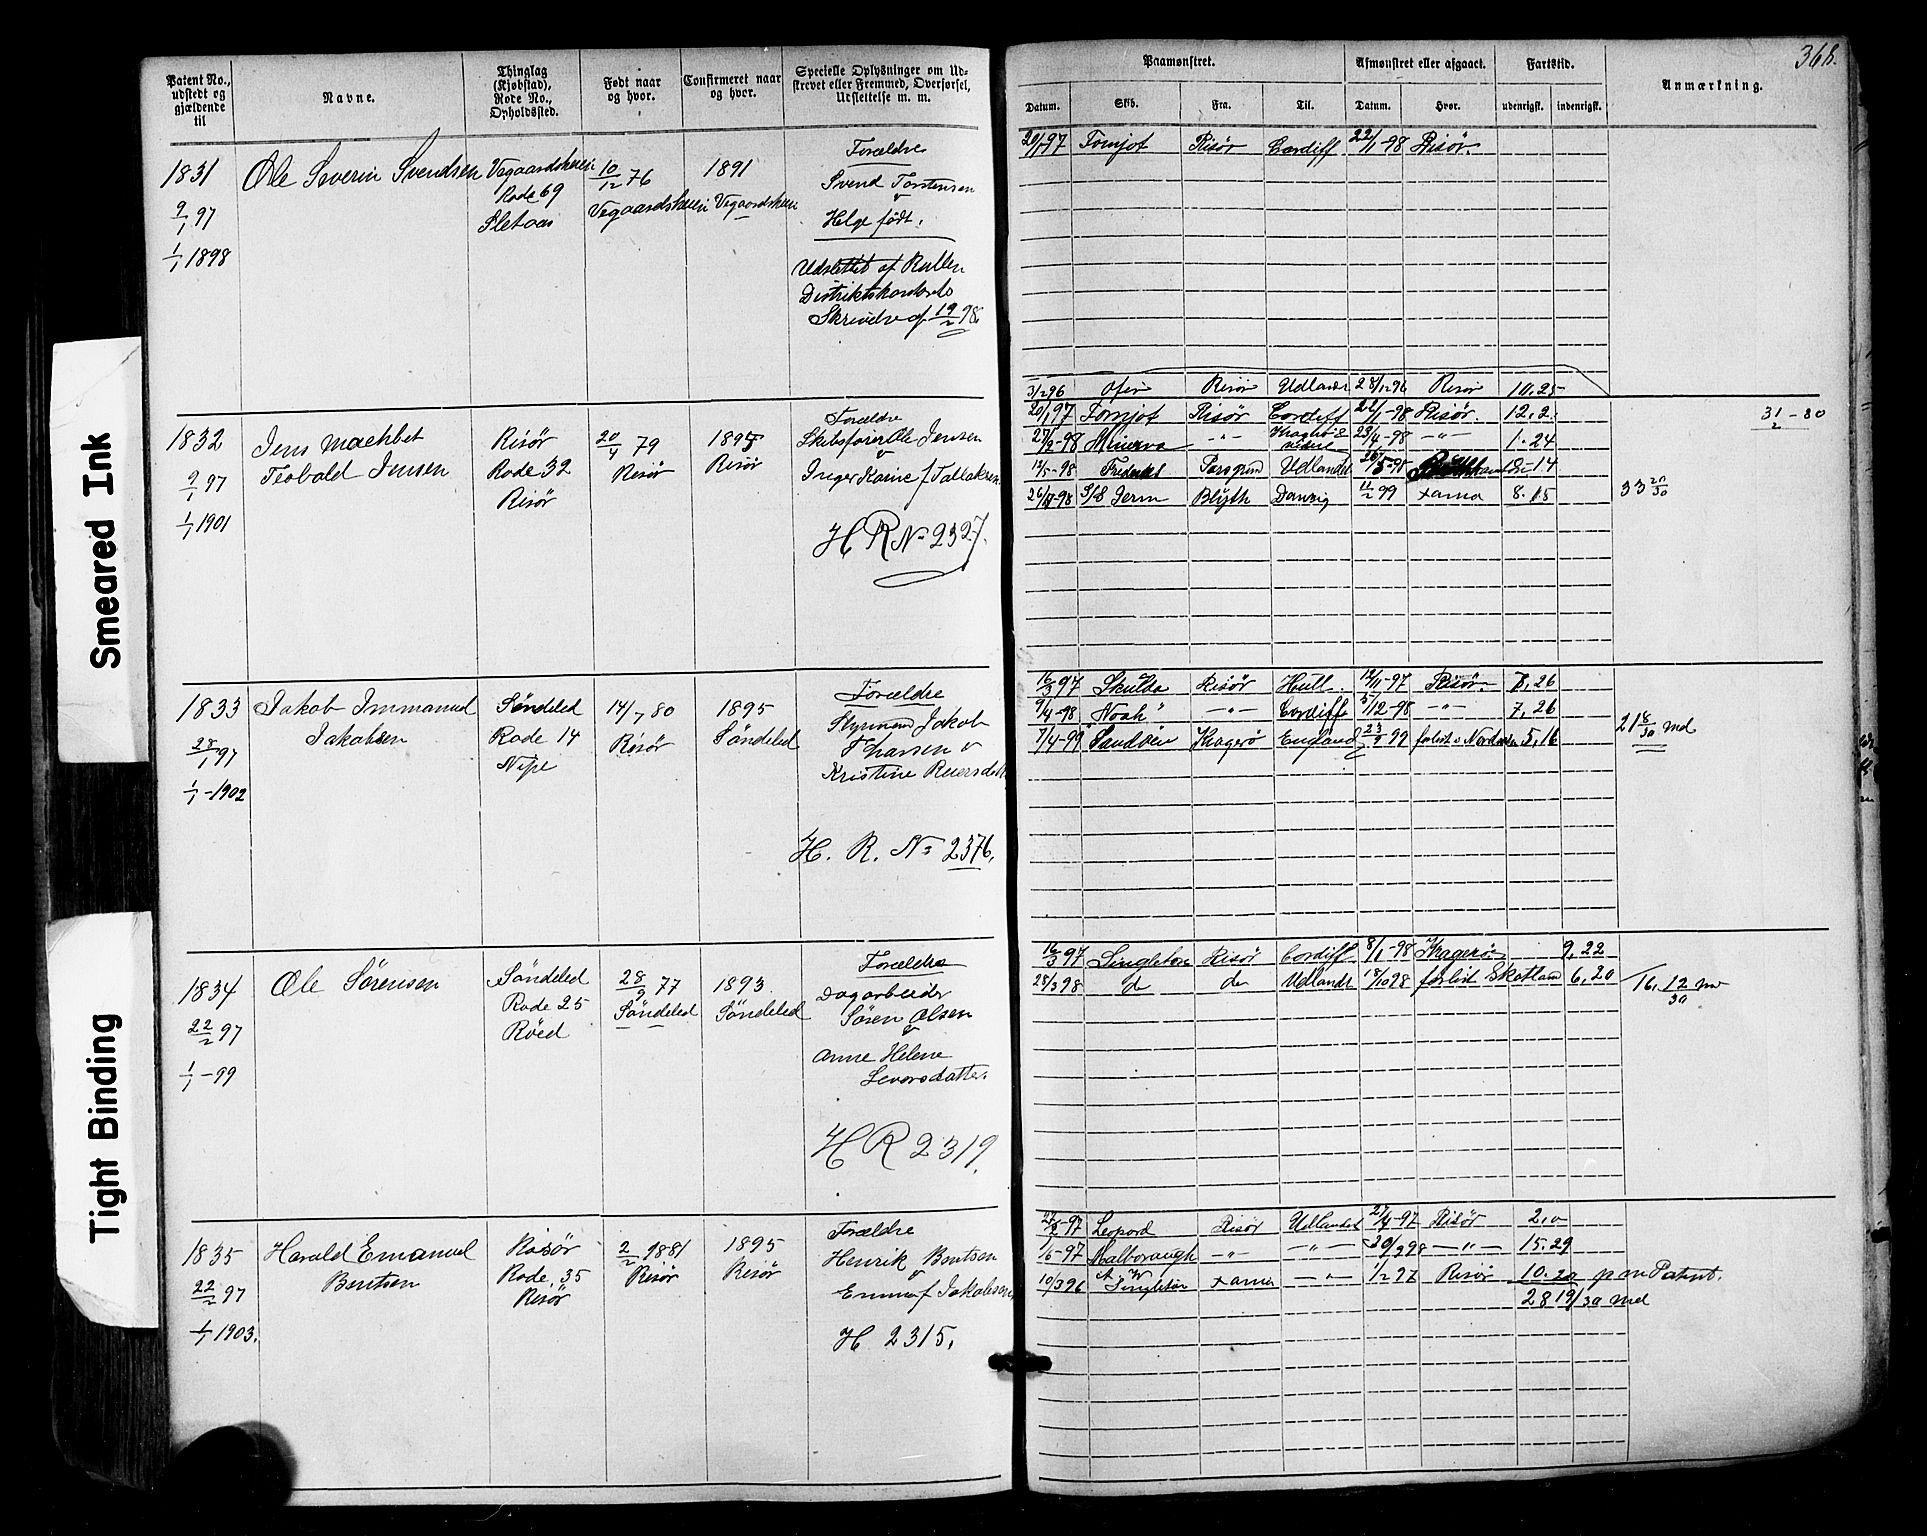 Smeared Ink
Tight Binding
Patent No., udstedt og gjældende til
Navne.
Thinglag (Kjøbstad), Rode No., Opholdssted.
Født naar og hvor.
Confirmeret naar og hvor.
Specielle Oplysninger om Udskrevet eller Fremmed, Overførsel, Udslettelse m. m.
Paamønstret.
Afmønstret eller afgaaet.
Fartstid.
Anmærkning.
368.
Datum. Skib. Fra. Til. Datum. Hvor. udenrigsk. indenrigsk.
1831 Ole Severin Svendsen Vegaardsheien 10/12 76 1891 Forældre
9/1 97 Rode 69 Vegaardsheien Vegaardsheien Svend Torstensen
Sletaas
1/1 1898 Helge født.
Udslettet af Rullen
Distriktskontorets
Skrivelse af 19/2 98
20/1 97 Fornjot Risør Cardiff 22/1-98 Risør.
31/2 96 Ofir Risør Udlandet 28/12 96 Risør 10.25
1832 Jens Machbet Risør 20/4 79 1895 Forældre
9/1 97 Teobald Jensen Rode 32 Risør Risør Skibsfører Ole Jensen
1/1 1901 Risør Inger Kaine f Tallaksen
H R No 2327.
20/1 97 Fornjot Risør Cardiff 22/1-98 Risør. 12.2. 31/2-80
27/2-98 Minerva -"- 23/4-98 -"- 1.24
12/5-98 Porsgrund Udlandet 2-14
26/8-98 S/S Jerm Blyth Danzig 11/2 99 xania 8.15
33 21/30
1833 Jakob Immanuel Søndeled 14/7 80 1895 Forældre
28/1 97 Jakobsen Rode 14 Risør Søndeled Styrmand Jakob
1/1-1902 Nipe Tharsen v
Kristine Reiersdatter
H. R. No 2376.
16/3 97 Skulda Risør Hull. 12/11-97 Risør. 7,26
9/4-98 Noah" -"- Cardiff 5/12-98 -"- 7,26
7/4-99 "Sandøen" Kragerø England 23/9 99 forlist i Nordsøen 5,16
21 8/30 Md
1834 Ole Sørensen Søndeled 28/9 77 1893. Forældre
22/2 97 Rode 25 Søndeled Søndeled Dagarbeider
1/1-99 Røed Søren Olsen
v
Anne Helene
Levorsdatter.
H R 2319.
16/3 97 Singleton Risør Cardiff 8/1-98 Kragerø 9,22
28/3 98 do do Udlandet 18/10 98 forlist Skotland 6,20
16.12/30 md
1835 Harald Emanuel Risør 2/2 1881 1895 Forældre
22/2 97 Bentsen Rode 35 Risør Risør Henrik Bentsen
Risør v
1/1 1903. Emma f Jakobsen
H 2315.
27/2-97 Leopard Risør Udlandet 27/4-97 Risør 2,0
1/6-97 Malborough -"- -"- 30/9 98 -"- 15.29
10/3 96 A W Singleton xania -"- 1/2 97 Risør 10.20 p m Patent.
28 19/30 md